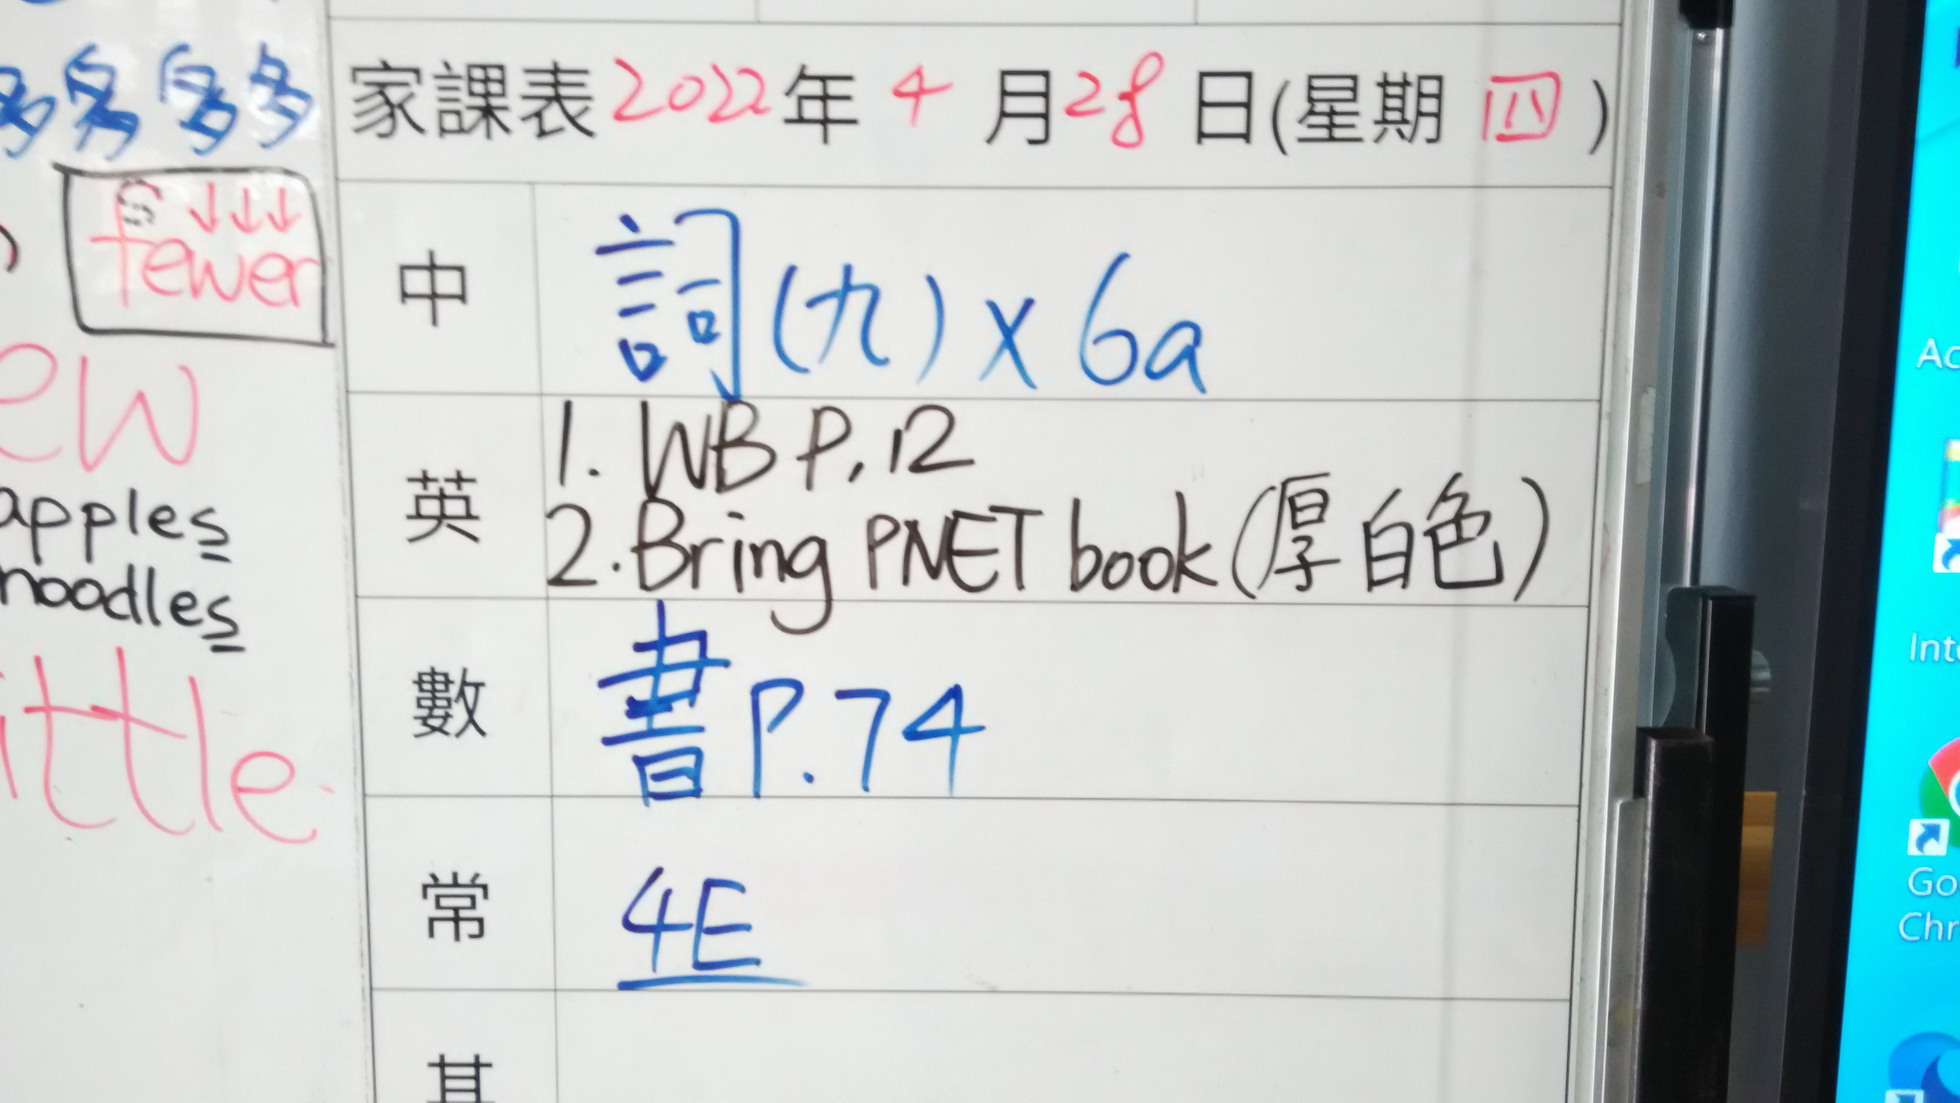 多多多多
fewer
ew
apples
noodles
ittle
家課表2022年4月28日(星期四)
中
詞(九)x6a
英
1. WB P.12
2. Bring PNET book(厚白色)
數
書P.74
常
4E
其
Ac
Int
Go
Chr